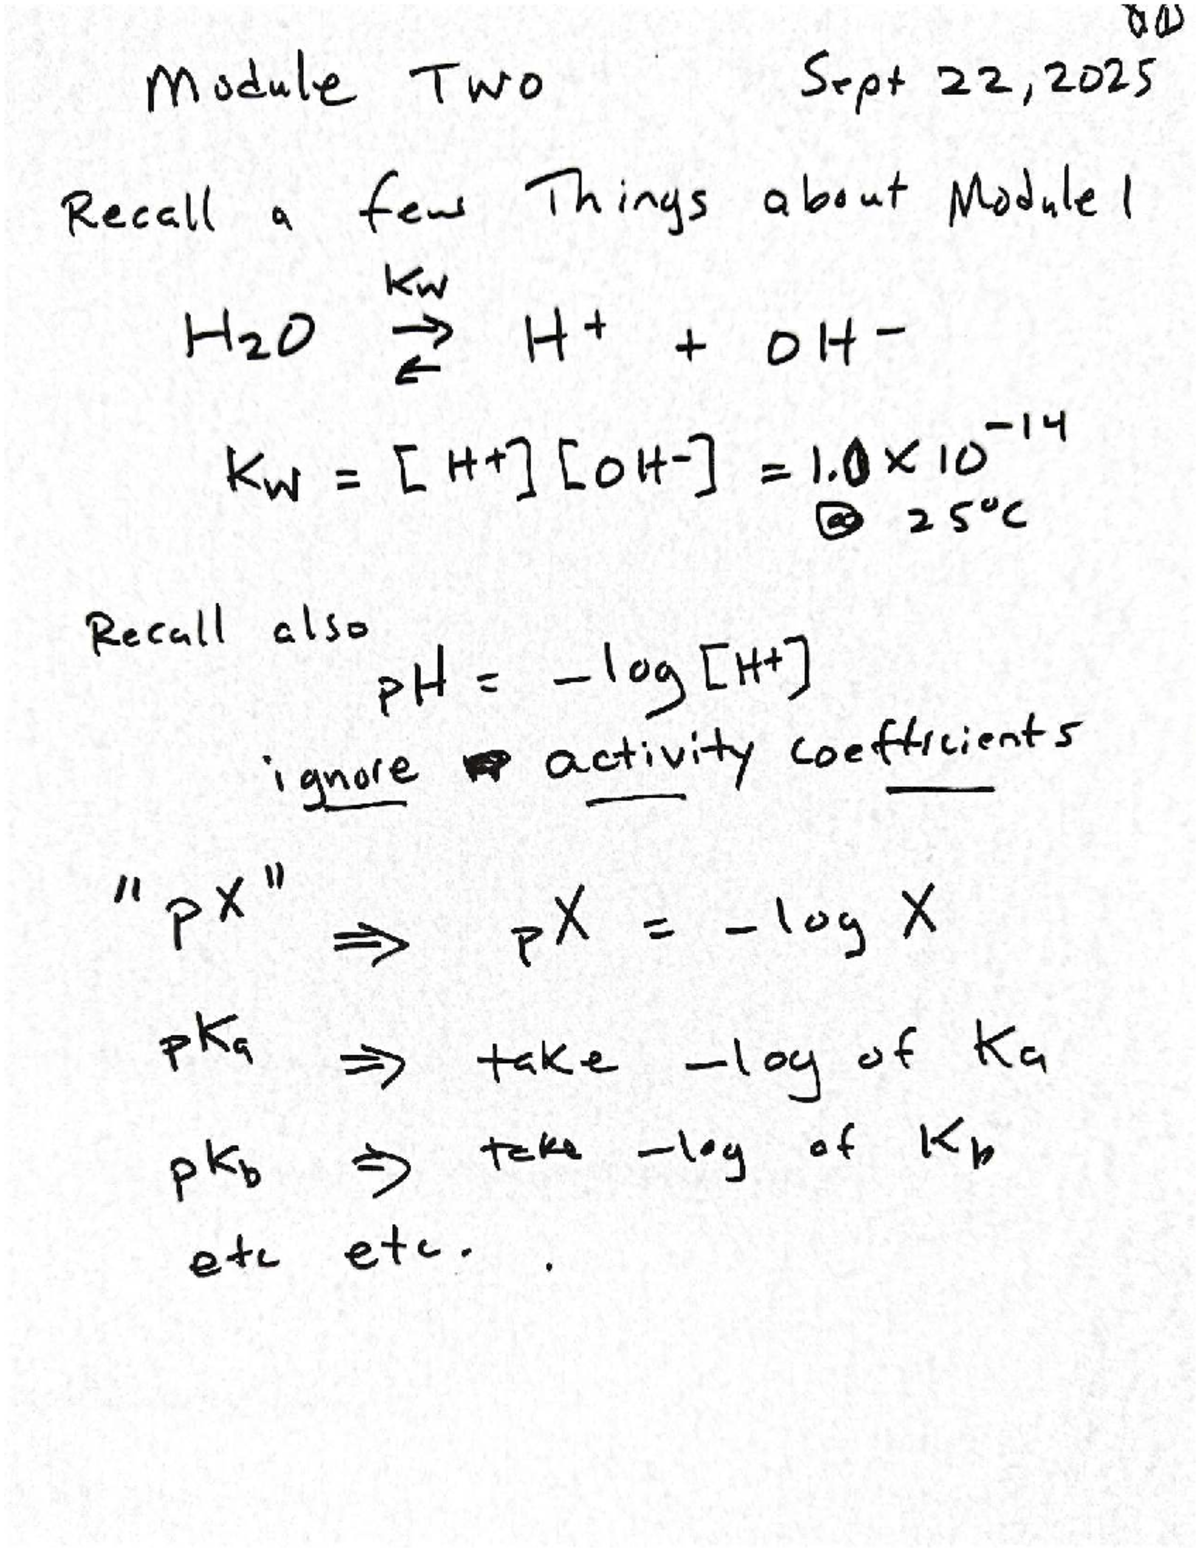 Module Two Sept 22, 2025
Recall a few Things about Module 1
Kw
H2O ⇄ H+ + OH-
Kw = [H+][OH-] = 1.0 × 10^-14
@ 25°C
Recall also
pH = -log [H+]
ignore activity coefficients
"pX" ⇒ pX = -log X
pKa ⇒ take -log of Ka
pKb ⇒ take -log of Kb
etc etc. .